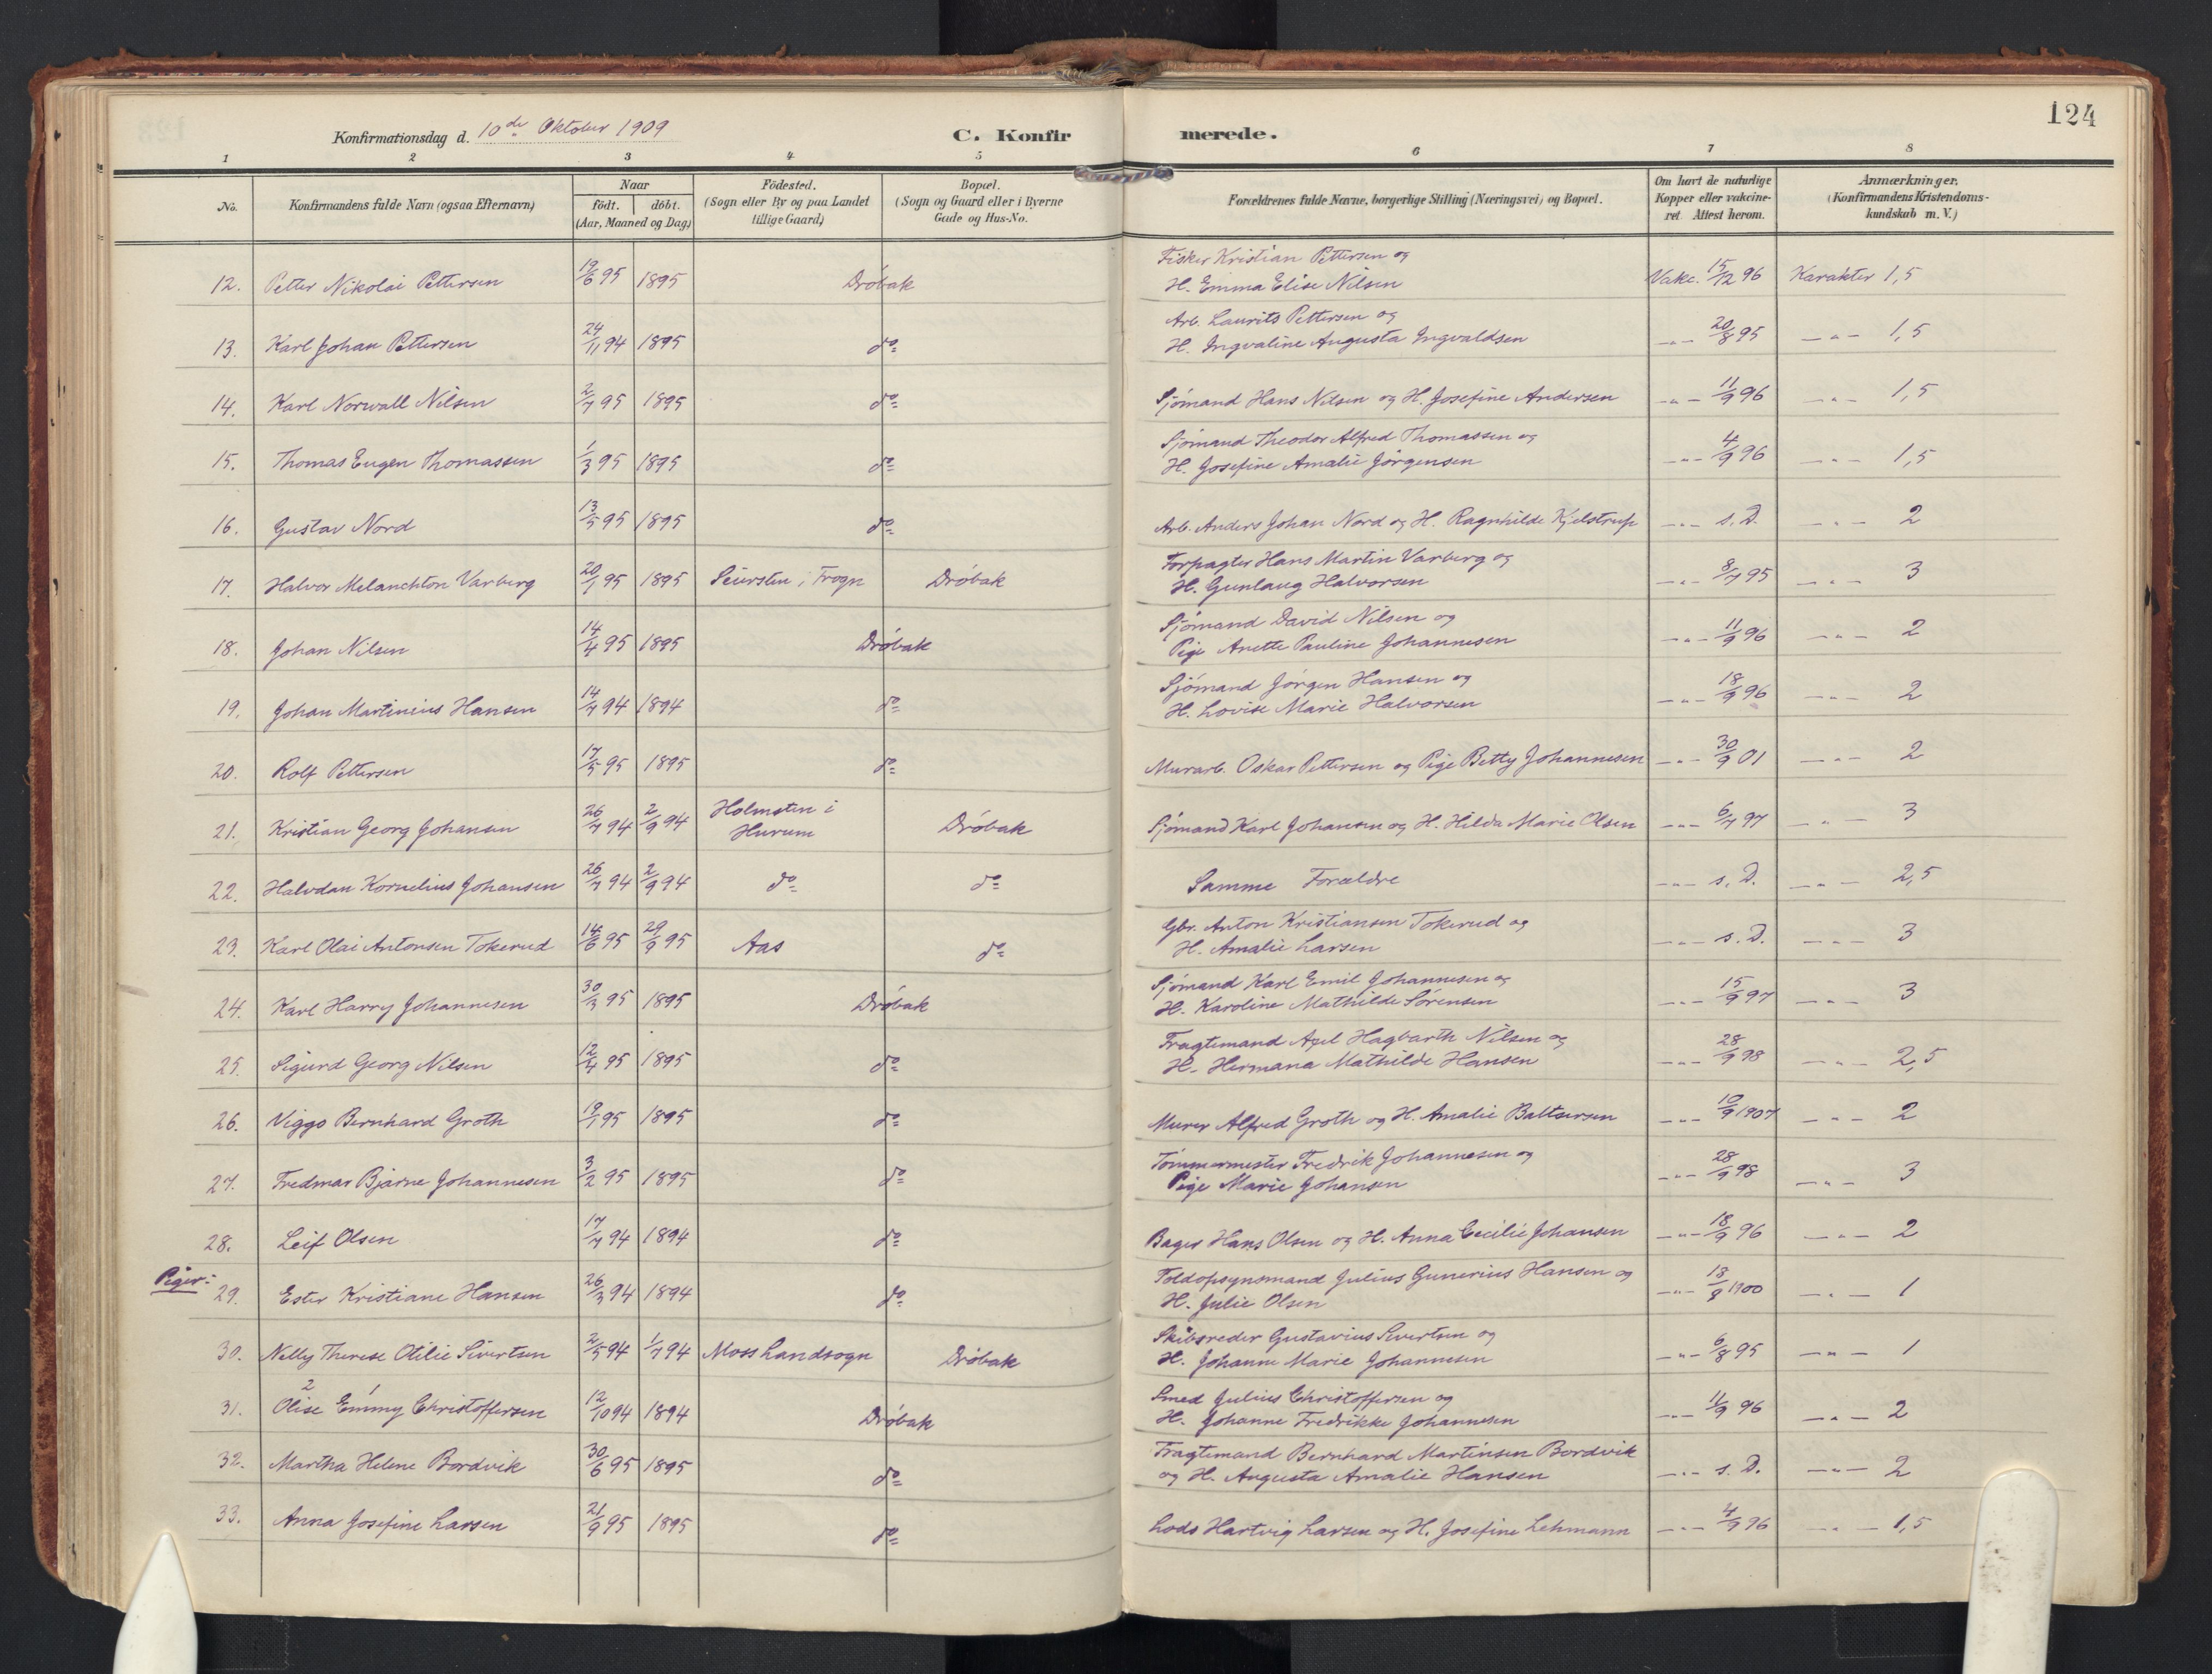 124
Konfirmationsdag d. 10de Oktober 1909
C. Konfir merede.
1 2 3 4 5 6 7 8
No.
Konfirmandens fulde Navn (ogsaa Efternavn)
Naar
født. døbt.
(Aar, Maaned og Dag)
Födested.
(Sogn eller By og paa Landet
tillige Gaard)
Bopæl.
(Sogn og Gaard eller i Byerne
Gade og Hus-No.
Forældrenes fulde Navne, borgerlige Stilling (Næringsvei) og Bopæl.
Om havt de naturlige
Kopper eller vakcine-
ret Attest herom.
Anmærkninger.
(Konfirmandens Kristendoms-
kundskab m. V.)
Fisker Kristian Pettersen og
12. Petter Nikolai Pettersen 19/6 95 1895 Dröbak H. Emma Elise Nilsen Vakc. 15/12 96 Karakter 1,5
Arb. Laurits Pettersen og
13. Karl Johan Pettersen 24/11 94 1895 do H. Ingvaline Augusta Ingvaldsen -"- 20/8 95 -"- 1,5
14. Karl Norwall Nilsen 2/7 95 1895 do Sjömand Hans Nilsen og H. Josefine Andersen -"- 11/9 96 -"- 1,5
Sjömand Theodor Alfred Thomassen og
15. Thomas Eugen Thomassen 1/3 95 1895 do H. Josefine Amalie Jörgensen -"- 4/9 96 -"- 1,5
16. Gustav Nord 13/5 95 1895 do Arb. Anders Johan Nord og H. Ragnhilde Kjelstrup -"- s. D. -"- 2
Forpagter Hans Martin Varberg og
17. Halvor Melanchton Varberg 20/1 95 1895 Seiersten i Frogn Dröbak H. Gunlaug Halvorsen -"- 8/7 95 -"- 3
Sjömand David Nilsen og
18. Johan Nilsen 14/4 95 1895 Dröbak Pige Anette Pauline Johannesen -"- 11/9 96 -"- 2
Sjömand Jörgen Hansen og
19. Johan Martinius Hansen 14/7 94 1894 do H. Lovise Marie Halvorsen -"- 18/9 96 -"- 2
20. Rolf Pettersen 17/5 95 1895 do Murarb. Oskar Pettersen og Pige Betty Johannesen -"- 30/9 01 -"- 2
Holmsten i
21. Kristian Georg Johansen 26/7 94 2/9 94 Hurum Dröbak Sjömand Karl Johansen og H. Hilda Marie Olsen -"- 6/7 97 -"- 3
22. Halvdan Kornelius Johansen 26/7 94 2/9 94 do do Samme Forældre -"- s. D. -"- 2,5
Gbr. Anton Kristiansen Tokerud og
23. Karl Olai Antonsen Tokerud 14/6 95 29/9 95 Aas do H. Amalie Larsen -"- s. D. -"- 3
Sjömand Karl Emil Johannesen og
24. Karl Harry Johannesen 30/3 95 1895 Dröbak H. Karoline Mathilde Sörensen -"- 15/9 97 -"- 3
Fragtemand Axel Hagbarth Nilsen og
25. Sigurd Georg Nilsen 12/4 95 1895 do H. Hermana Mathilde Hansen -"- 28/9 98 -"- 2,5
26. Viggo Bernhard Groth 19/1 95 1895 do Murer Alfred Groth og H. Amalie Baltsersen -"- 10/9 1907 -"- 2
Tömmermester Fredrik Johannesen og
27. Fredmar Bjarne Johannesen 3/2 95 1895 do Pige Marie Johansen -"- 28/9 98 -"- 3
28. Leif Olsen 17/7 94 1894 do Bager Hans Olsen og H. Anna Cecilie Johansen -"- 18/9 96 -"- 2
Piger: Toldopsynsmand Julius Gunerius Hansen og
29. Ester Kristiane Hansen 26/3 94 1894 do H. Julie Olsen -"- 13/9 1900 -"- 1
Skibsreder Gustavius Sivertsen og
30. Nelly Therese Otilie Sivertsen 2/5 94 1/7 94 Moss Landsogn Dröbak H. Johanne Marie Johannesen -"- 6/8 95 -"- 1
2 1 Smed Julius Christoffersen og
31. Olise Emmy Christoffersen 12/10 94 1894 Dröbak H. Johanne Fredrikke Johannesen -"- 11/9 96 -"- 2
Fragtemand Bernhard Martinsen Bordvik
32. Martha Helene Bordvik 30/6 95 1895 do og H. Augusta Amalie Hansen -"- s. D. -"- 2
33. Anna Josefine Larsen 21/9 95 1895 do Lods Hartvig Larsen og H. Josefine Lehmann -"- 4/9 96 -"- 1,5